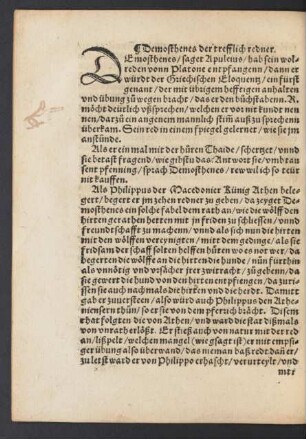 Demosthenes der trefflich redner.
Demosthenes / saget Apuleius / hab sein wol-
reden vonn Platone entpfangenn / dann er
würdt der Griechischen Eloquentz / ein fürst
genant / der mit übrigem hefftigen anhalten
vnd übung zů wegen bracht / das er den bůchstaben R.
möcht deürlich vßsprechen / welchen er vor nit kundt nen-
nen / darzů ein angenem mannlich stim auß zů sprechenn
überkam. Sein red in einem spiegel gelernet / wie sie jm
anstünde.
Als er ein mal mit der hůren Thaide / schertzet / vnnd
sie betast fragend / wie gibstu das: Antwort sie / vmb tau-
sent pfenning / sprach Demosthenes / rew wil ich so teür
nit kauffen.
Als Philippus der Macedonier Künig Athen bele-
gert / begert er jm zehen redner zů geben / da zeyget De-
mosthenes ein solche fabel dem rath an / wie der wölff den
hirten gerathen hetten mit jn friden zů schliessen / vnnd
freündtschafft zů machenn / vnnd als sich nun die hirten
mit den wölffen vereynigten / mit dem gedingk / als sie
fridsam der schaff solten helffen hüten wo es not wer / da
begerten die wölffe an die hirten die hunde / nün fürthin
als vnnötig vnd vrsächer jrer zwitracht / zů gebenn / da
sie gewert die hund von den hirten entpfiengen / da zuris-
sen sie auch nachmals die hirten vnd die herdt. Da mit
gab er zuuersteen / also würd auch Philippus den Athe-
niensern thůn / so er sie von dem pferrich brächt. Disem
rhat folgten die von Athen / vnd ward die stat dißmals
von vnrath erlößt. Er stieß auch von natur mit der red
an / lißpelt / welchen mangel (wie gsagt ist) er mit empsi-
ger übung also überwand / das nieman baß redt dan er /
zů letst ward er von Philippo erhascht / verurteylt / vnd